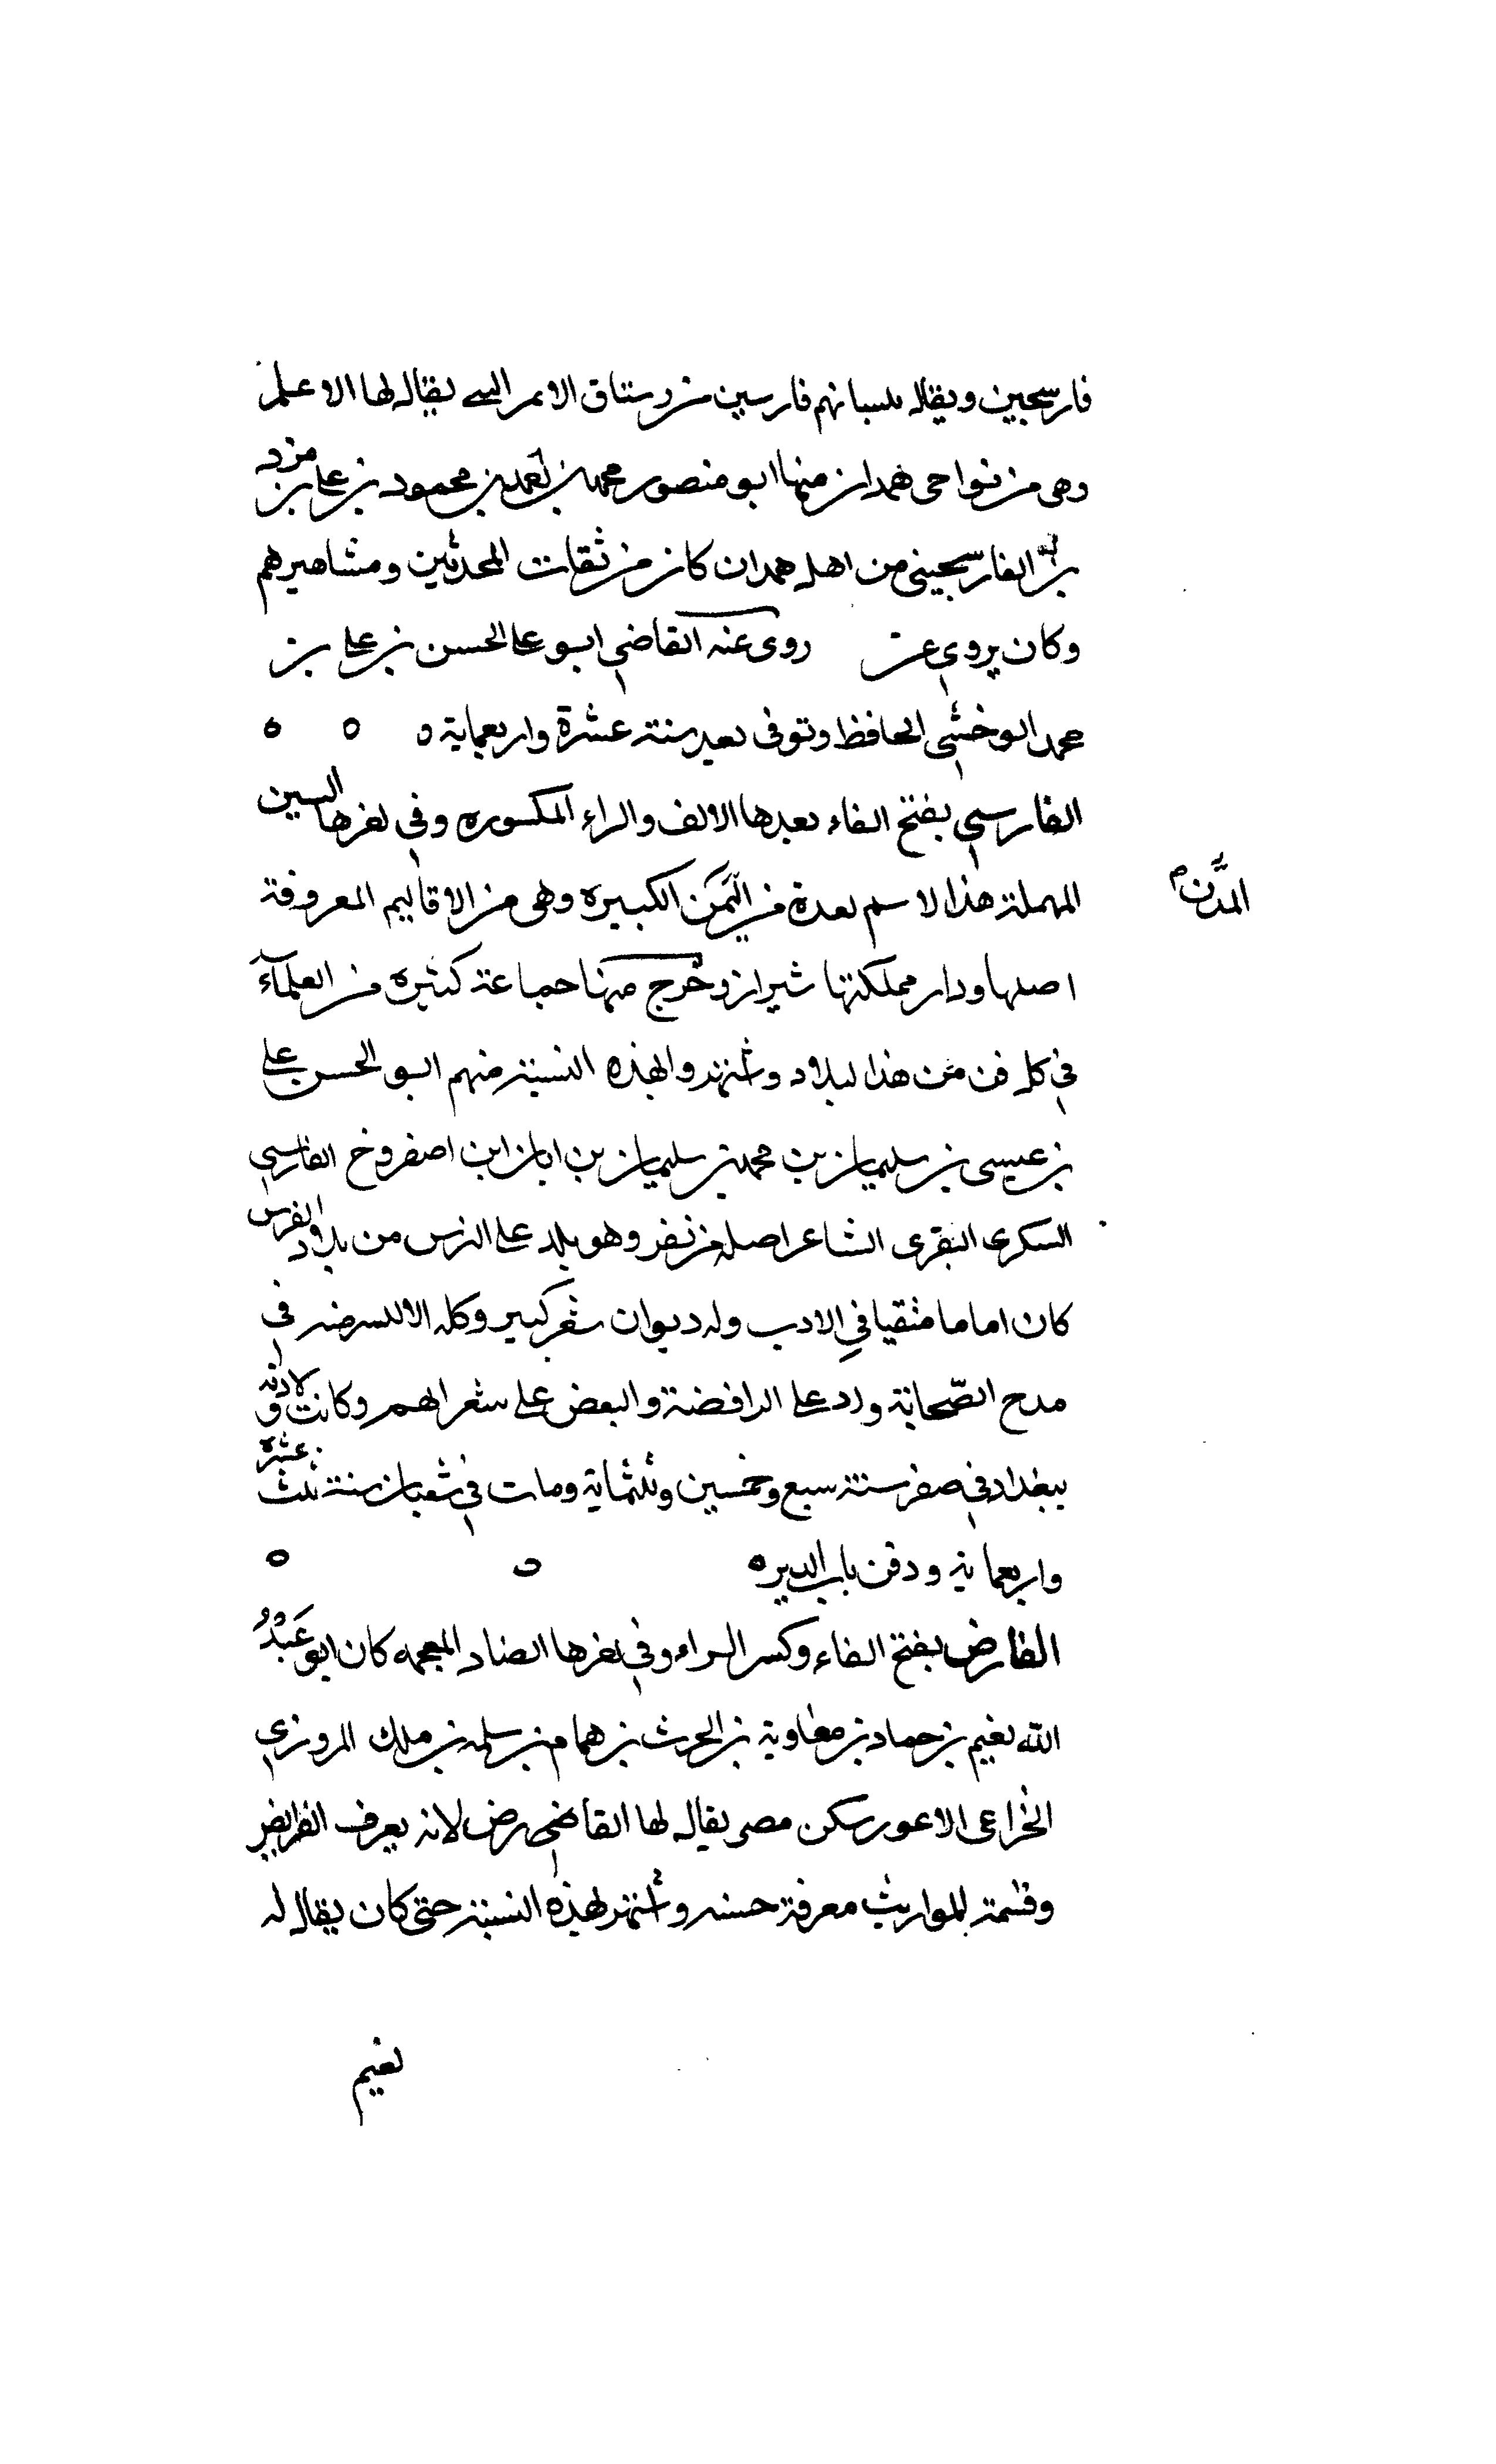 فارسجين ويقال بلسانهم فارسين من رستاق الامر التى يقال لها الاعلم
وهى من نواحى همدان منها ابو منصور محمد بن احمد بن محمود بن على بن مزد
بن الفارسجينى من اهل همدان كان من ثقات المحدثين ومشاهيرهم
وكان يروى عن روى عنه القاضى ابو على الحسن بن على بن
محمد الوخشى الحافظ وتوفى بعد سنة عشرة واربعماية ه ه ه
الفارسى بفتح الفاء بعدها الالف والراء المكسوره وفى اخرها السين
المهملة هذا الاسم لعدة من المدن الكبيره وهى من الاقاليم المعروفة
المدن
اصلها ودار مملكتها شيراز وخرج منها جماعة كثيره من العلمآء
فى كل فن من هذا لبلاد واشتهروا بهذه النسبة منهم ابو الحسن على
بن عيسى بن سليمان بن محمد بن سليمان بن ابان ابن اصفروخ الفارسى
السكرى النفرى الشاعر اصله من نفر وهو بلد على النرس من بلاد الفرس
كان اماما متقيا فى الادب وله ديوان شعر كبير وكله الا اليسر منه فى
مدح الصّحابة ورد على الرافضة والبعض على شعرائهم وكانت ولادته
ببغداد فى صفر سنة سبع وخمسين وثلثماية ومات فى شعبان سنة ثلث عشره
واربعماية ودفن باب الدير ه ه ه
الفارض بفتح الفاء وكسر الراء وفى اخرها الضاد المعجمه كان ابو عَبْدُ
الله نعيم بن حماد بن معاوية بن الحرث بن همام بن سلمه بن ملك المروزى
الخزاعى الاعور سكن مصر يقال لها القاضى رض لانه يعرف الفرايض
وقسمة المواريث معرفة حسنه واشتهر لهذه النسبة حتى كان يقال له
نعيم